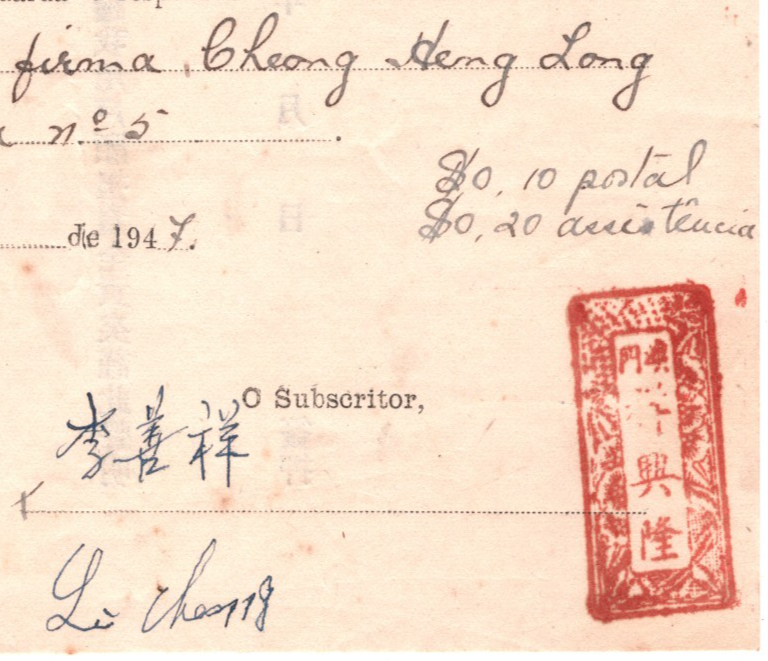 firma Cheong Heng Long
nº 5
$0,10 postal
$0,20 assistência
de 1947.
O Subscritor,
李善祥
澳門
興隆